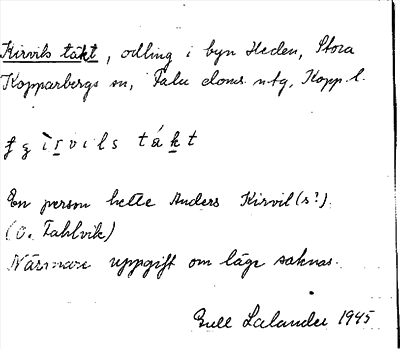 Kirvils täkt, odling i byn Heden, Stora
Kopparbergs sn, Falu doms. ntg, Kopp. l.
ìrvils tákt
En person hette Anders Kirvil (s?)
(ö. Tahlvik)
Närmare uppgift om läge saknas.
Gull Lalander 1945